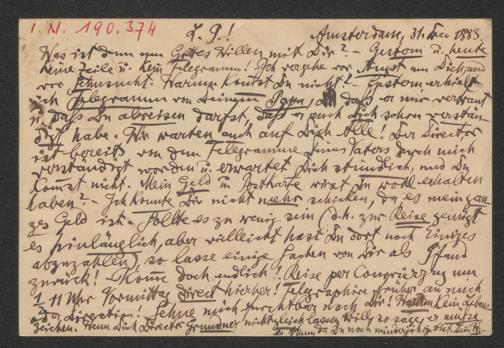 I.N. 190.374
L. G.! Amsterdam, 31. Dec 1883.
Was ist denn um Gottes Willen mit Dir? - Gestern u. heute
keine Zeile u. kein Telegramm! Ich vergehe vor Angst um Dich und
vor Sehnsucht. Warum kommst Du nicht? - Gestern erhielt
ich Telegramm von Deinem Papa, daß er mir vertraut
u. daß Du abreisen darfst, daß er auch Dich schon verstän-
digt habe. Wir warten auch auf Dich Alle! Der Director
ist bereits von dem Telegramme Deines Vaters durch mich
verständigt worden u. erwartet Dich stündlich, und Du
kommst nicht. Mein Geld u. Postkarte wirst Du wohl erhalten
haben? - Ich konnte Dir nicht mehr schicken, da es mein gan-
zes Geld ist. Sollte es zu wenig sein (d.h. zur Reise genügt
es hinlänglich, aber vielleicht hast Du dort noch Einiges
abzuzahlen), so lasse einige Sachen von Dir als Pfand
zurück! Komme doch endlich! Reise per Courierzug um
11 Uhr Vormittag direct hierher! Telegraphire früher an mich
Director nicht gleich lassen will, so sage er